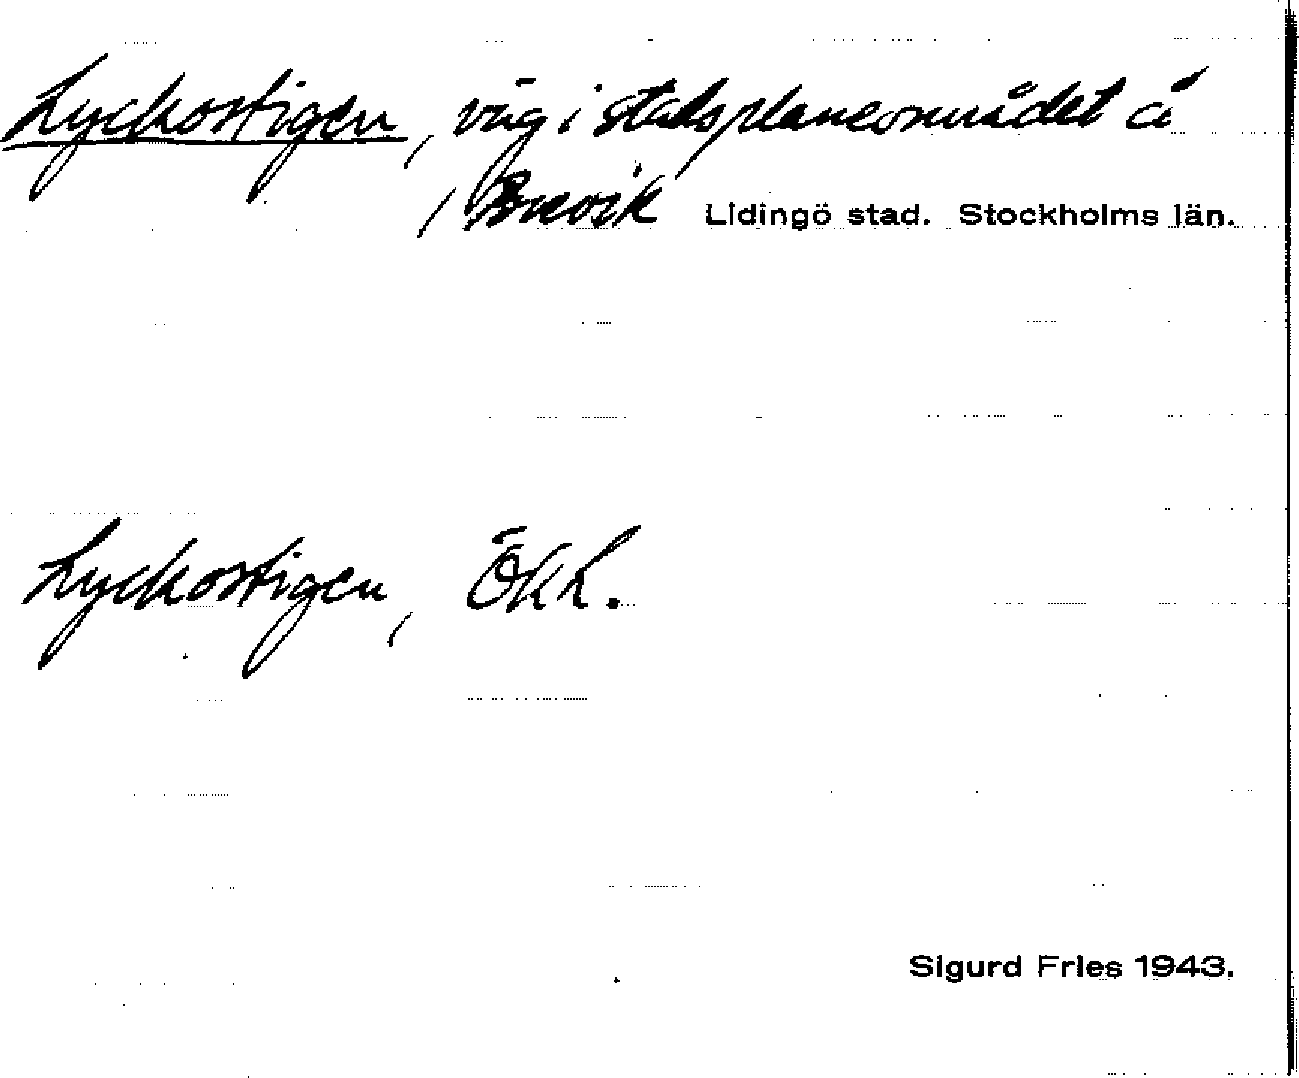 Lyckostigen, väg i stadsplaneområdet å
/ Brevik Lidingö stad. Stockholms län.
Lyckostigen, ÖKL.
Sigurd Fries 1943.